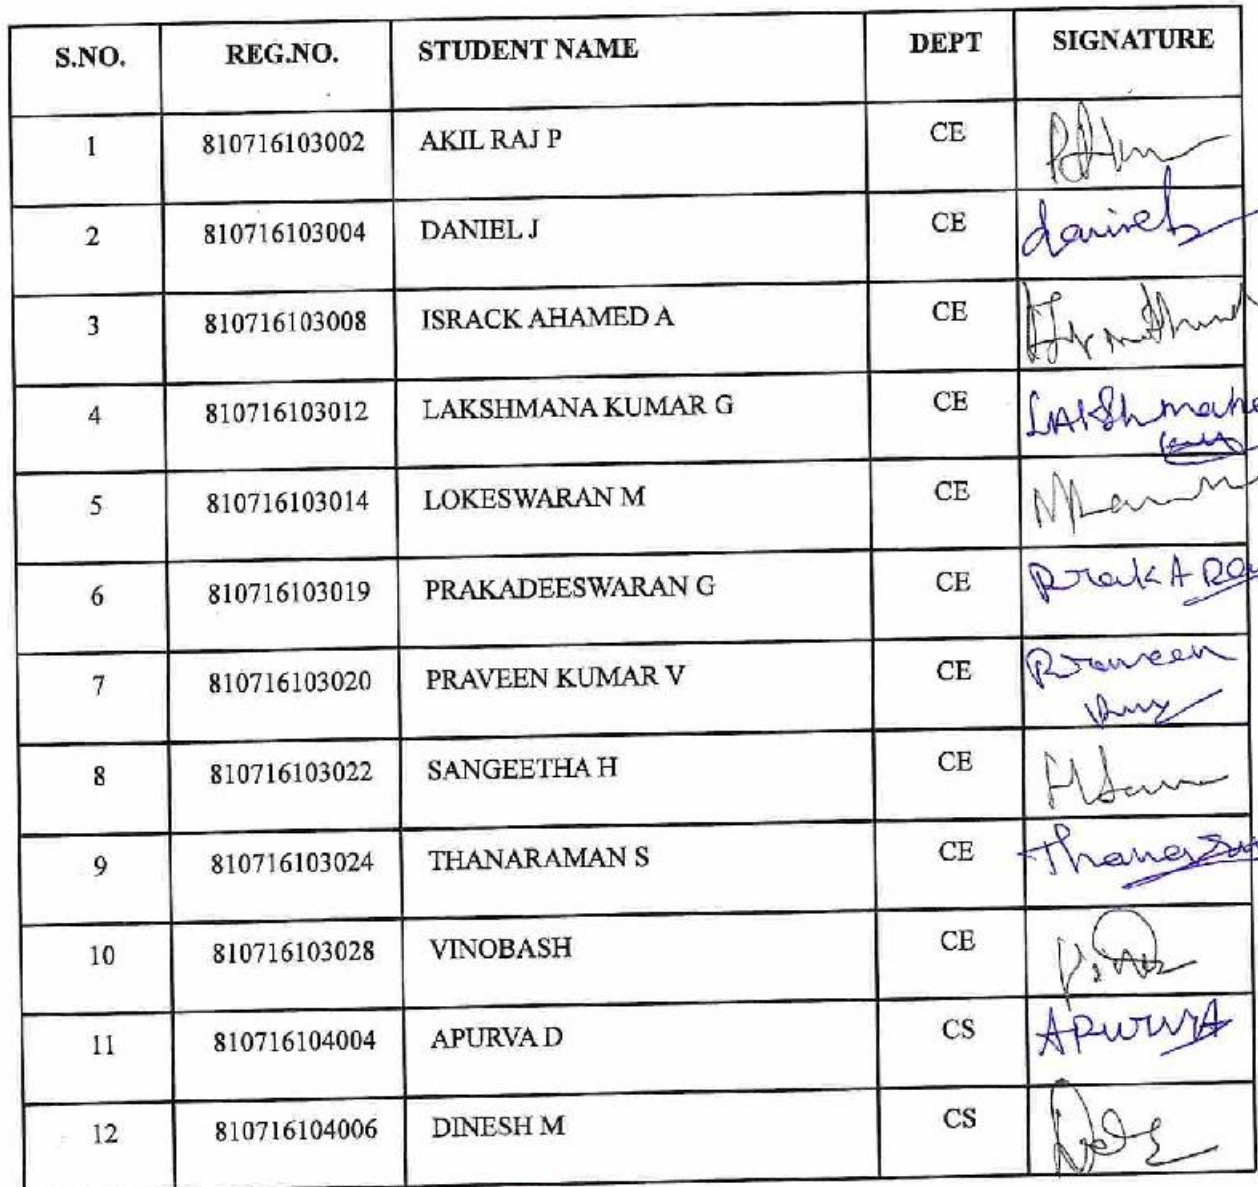 S.NO. REG.NO. STUDENT NAME DEPT SIGNATURE
1 810716103002 AKIL RAJ P CE
2 810716103004 DANIEL J CE daniel
3 810716103008 ISRACK AHAMED A CE
4 810716103012 LAKSHMANA KUMAR G CE
5 810716103014 LOKESWARAN M CE
6 810716103019 PRAKADEESWARAN G CE
7 810716103020 PRAVEEN KUMAR V CE Praveen
8 810716103022 SANGEETHA H CE
9 810716103024 THANARAMAN S CE
10 810716103028 VINOBASH CE
11 810716104004 APURVA D CS APURVA
12 810716104006 DINESH M CS